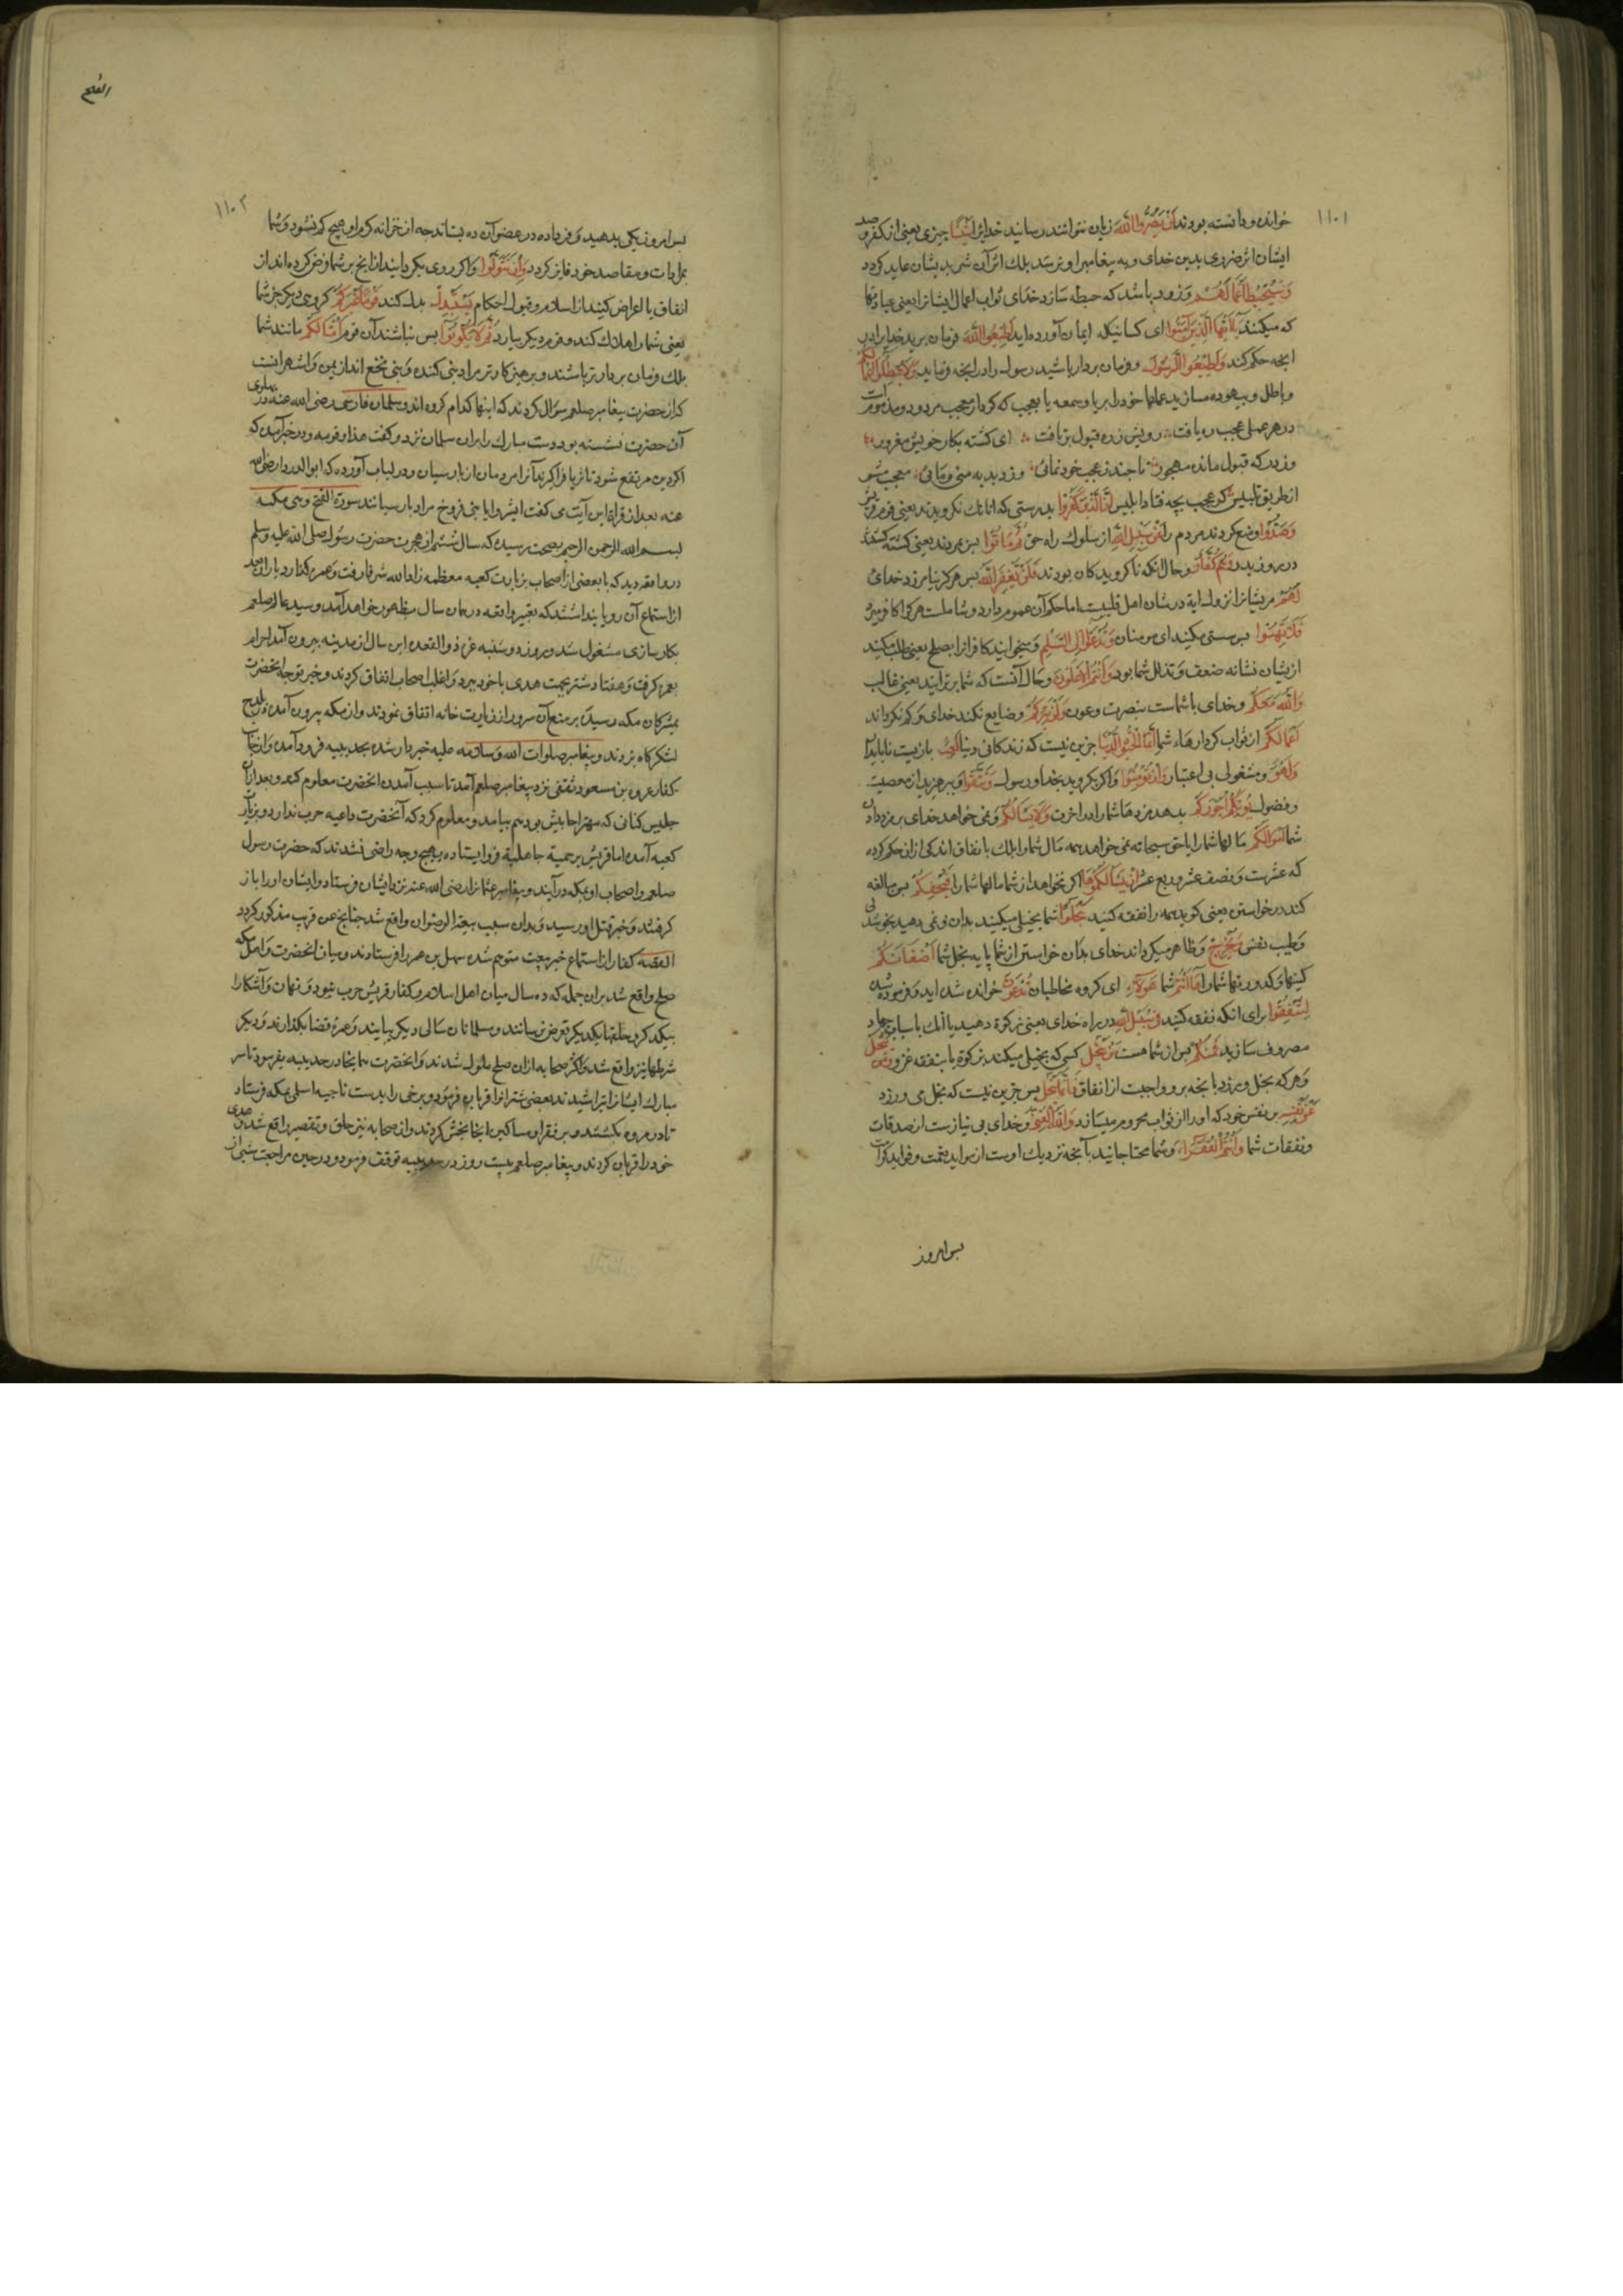 ١١٠١
خوانده و دانسته بودند لَنْ يَضُرُّوا اللَّهَ زیان نتوانند رسانید خدایرا شَيْئًا چیزی یعنی از کفر و صد
ایشان اثر ضرری بدین خدای و به پیغامبر او نرسد بلک اثر آن شر بدیشان عاید کردد
وَسَيُحْبِطُ أَعْمَالَهُمْ و زود باشد که حبطه سازد خدای ثواب اعمال ایشانرا یعنی عبادتها
که میکنند يَا أَيُّهَا الَّذِينَ آمَنُوا ای کسانیکه ایمان آورده اید أَطِيعُوا اللَّهَ فرمان برید خدایرا در
انجه حکم کند وَأَطِيعُوا الرَّسُولَ و فرمان بردار باشید رسول را در انجه فرماید وَلَا تُبْطِلُوا أَعْمَالَكُمْ
و باطل و بیهوده مسازید عملهای خود را بریا و سمعه یا بعجب که کردار معجب مردود و مذمومست
در هر عملی عجب ره یافت رویش ز ره قبول بر تافت ای کشته بکار خویش مغرور
وز درکه قبول مانده مهجور تا چند ز عجب خودنمائی وز دبدبه منی و مائی معجب مشو
از طریق تلبیس کز عجب بچه فتاد ابلیس إِنَّ الَّذِينَ كَفَرُوا بدرستی که انانک نکرویدند یعنی قوم قریش
وَصَدُّوا و منع کردند مردم را عَنْ سَبِيلِ اللَّهِ از سلوک راه حق ثُمَّ مَاتُوا پس بمردند یعنی کشته کشتند
در روز بدر وَهُمْ كُفَّارٌ و حال انکه ناکرویدکان بودند فَلَنْ يَغْفِرَ اللَّهُ پس هرکز نیامرزد خدای
لَهُمْ مریشانرا نزول ایة در شان اهل قلیبست اما حکم آن عموم دارد و شاملست هر کرا کافر میرد
فَلَا تَهِنُوا پس سستی مکنید ای مومنان وَتَدْعُوا إِلَى السَّلْمِ و مخوانید کافرانرا بصلح یعنی طلب مکنید
ازیشان نشانه ضعف و تذلل شما بود وَأَنْتُمُ الْأَعْلَوْنَ و حال آنست که شما برترانید یعنی غالب
وَاللَّهُ مَعَكُمْ و خدای با شماست بنصرت و عون وَلَنْ يَتِرَكُمْ و ضایع نکند خدای و کم نکرداند
أَعْمَالَكُمْ از ثواب کردارهاء شما إِنَّمَا الْحَيَاةُ الدُّنْيَا جزین نیست که زندکانی دنیا لَعِبٌ بازیست ناپایدار
وَلَهْوٌ و مشغولی بی اعتبار وَإِنْ تُؤْمِنُوا و اکر بکروید بخدا و رسول وَتَتَّقُوا و بپرهیزید از معصیت
و فضول يُؤْتِكُمْ أُجُورَكُمْ بدهد مزدهاء شما را در اخرت وَلَا يَسْأَلْكُمْ و نمی خواهد خدای بر مزد دادن
شما أَمْوَالَكُمْ مالهاء شما را یا حق سبحانه نمی خواهد همه مال شما را بلک بانفاق اندکی از ان حکم کرده
که عشرست و نصف عشر و ربع عشر إِنْ يَسْأَلْكُمُوهَا اکر بخواهد از شما مالهاء شما را فَيُحْفِكُمْ پس مبالغه
کند در خواستن یعنی کوید همه را نفقه کنید تَبْخَلُوا شما بخیلی میکنید بدان و نمی دهید بخوشدلی
و طیب نفس وَيُخْرِجْ و ظاهر میکرداند خدای بدان خواستن از شما یا به بخل شما أَضْغَانَكُمْ
کینها و کدورتهاء شما را هَا أَنْتُمْ شما هَؤُلَاءِ ای کروه مخاطبان تُدْعَوْنَ خوانده شده اید و فرموده شده
لِتُنْفِقُوا برای انکه نفقه کنید فِي سَبِيلِ اللَّهِ در راه خدای یعنی زکوة دهید یا انک باسباب جهاد
مصروف سازید فَمِنْكُمْ پس از شما هست مَنْ يَبْخَلُ کسی که بخیلی میکند بزکوة یا بنفقه غزو وَمَنْ يَبْخَلْ
و هر که بخل ورزد بانجه برو واجبست از انفاق فَإِنَّمَا يَبْخَلُ پس جزین نیست که بخل می ورزد
عَنْ نَفْسِهِ بر نفس خود که او را از ثواب محروم میسازد وَاللَّهُ الْغَنِيُّ و خدای بی نیازست از صدقات
و نفقات شما وَأَنْتُمُ الْفُقَرَاءُ و شما محتاجانید بآنجه نزدیک اوست از مواید نعمت و فواید کرامت
پس امروز
الفتح
١١٠٢
پس امروز یکی بدهید و فردا ده در عوض آن ده بستاند چه از خزانه کرم او هیچ کم نشود و شما
بمرادات و مقاصد خود فایز کردد وَإِنْ تَتَوَلَّوْا و اکر روی بکردانید از انج بر شما فرض کرده اند از
انفاق یا اعراض کنید از اسلام و قبول احکام يَسْتَبْدِلْ بدل کند قَوْمًا غَيْرَكُمْ کروهی دیکر جز شما
یعنی شما را هلاک کند و قوم دیکر بیارد ثُمَّ لَا يَكُونُوا پس نباشند آن قوم أَمْثَالَكُمْ مانند شما
بلک فرمان بردارتر باشند و پرهیزکارتر مراد بنی کنده و بنی نخع اند از یمن و اشهر انست
که از حضرت پیغامبر صلعم سؤال کردند که اینها کدام کروه اند و سلمان فارسی رضی الله عنه در پهلوی
آن حضرت نشسته بود دست مبارک را بران سلمان زد و کفت هذا و قومه و در خبر آمده که
اکر دین مرتفع شود تا ثریا فراکیرند آنرا مردمان از پارسیان و در لباب آورده که ابو الدردا رضی الله
عنه بعد از قراة این آیت می کفت ابشروا یا بنی فروخ مراد پارسیانند سورة الفتح وهی مکیه
بسم الله الرحمن الرحیم بصحت رسیده که سال ششم از هجرت حضرت رسول صلی الله علیه وسلم
در واقعه دید که با بعضی از اصحاب بزیارت کعبه معظمه زادها الله شرفا رفت و عمره کذارد یاران بعد
از استماع آن رویا پنداشتند که تعبیر واقعه در همان سال بظهور خواهد آمد و سید عالم صلعم
بکارسازی مشغول شد و بروز دوشنبه غره ذوالقعده این سال از مدینه بیرون آمد احرام
بعمره کرفت و هفتاد شتر بجهت هدی با خود ببرد و اغلب اصحاب اتفاق کردند و خبر توجه انحضرت
بمشرکان مکه رسید بر منع آن سرور از زیارت خانه اتفاق نمودند و از مکه بیرون آمده ببلدح
لشکرکاه بزدند و پیغامبر صلوات الله وسلامه علیه خبردار شده بحدیبیه فرود آمده و از جانب
کفار عروه بن مسعود ثقفی نزد پیغامبر صلعم آمد تا سبب آمدن انحضرت معلوم کند و بعد ازان
حلیس کنانی که مهتر احابیش بود هم بیامد و معلوم کرد که آنحضرت داعیه حرب ندارد و بزیارت
کعبه آمده اما قریش بر حمیة جاهلیة فرو ایستاده بهیچ وجه راضی نشدند که حضرت رسول
صلعم و اصحاب او بمکه درآیند و پیغامبر عثمانرا رضی الله عنه نزد ایشان فرستاد و ایشان او را باز
کرفتند و خبر قتل او رسید و بدان سبب بیعة الرضوان واقع شد چنانج عن قریب مذکور کردد
القصه کفار از استماع خبر بیعت متوهم شده سهیل بن عمرو را فرستادند و میان انحضرت و اهل مکه
صلح واقع شد بران جمله که ده سال میان اهل اسلام و کفار قریش حرب نبود و نهان و آشکارا
بیکدکر و حلفاء یکدیکر تعرض نرسانند و مسلمانان سالی دیکر بیایند و عمره قضا بکذارند و دیکر
شرطها نیز واقع شد و اکثر صحابه ازان صلح ملول شدند و انحضرت هم آنجا در حدیبیه بفرمود تا سر
مبارک ایشانرا تراشیدند بعضی شترانرا قربان فرمود و برخی را بدست ناجیه اسلمی بمکه فرستاد
تا در مروه بکشتند و بر فقرا و مساکین انجا بخش کردند و از صحابه نیز حلق و تقصیر واقع شد و هدی
خود را قربان کردند و پیغامبر صلعم بیست روز در حدیبیه توقف فرمود و در حین مراجعت شبی از